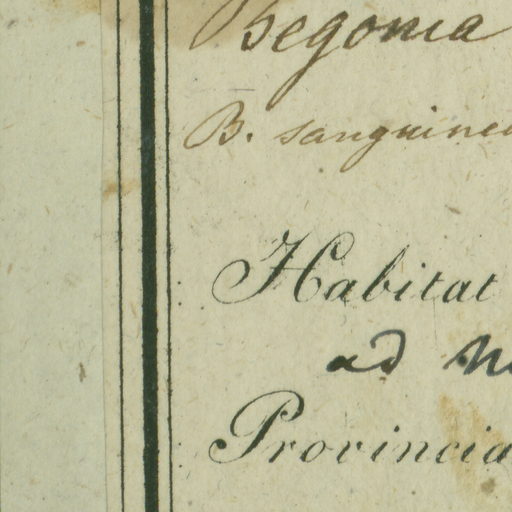 Begonia
B. sanguinea
Habitat
ad
Provincia